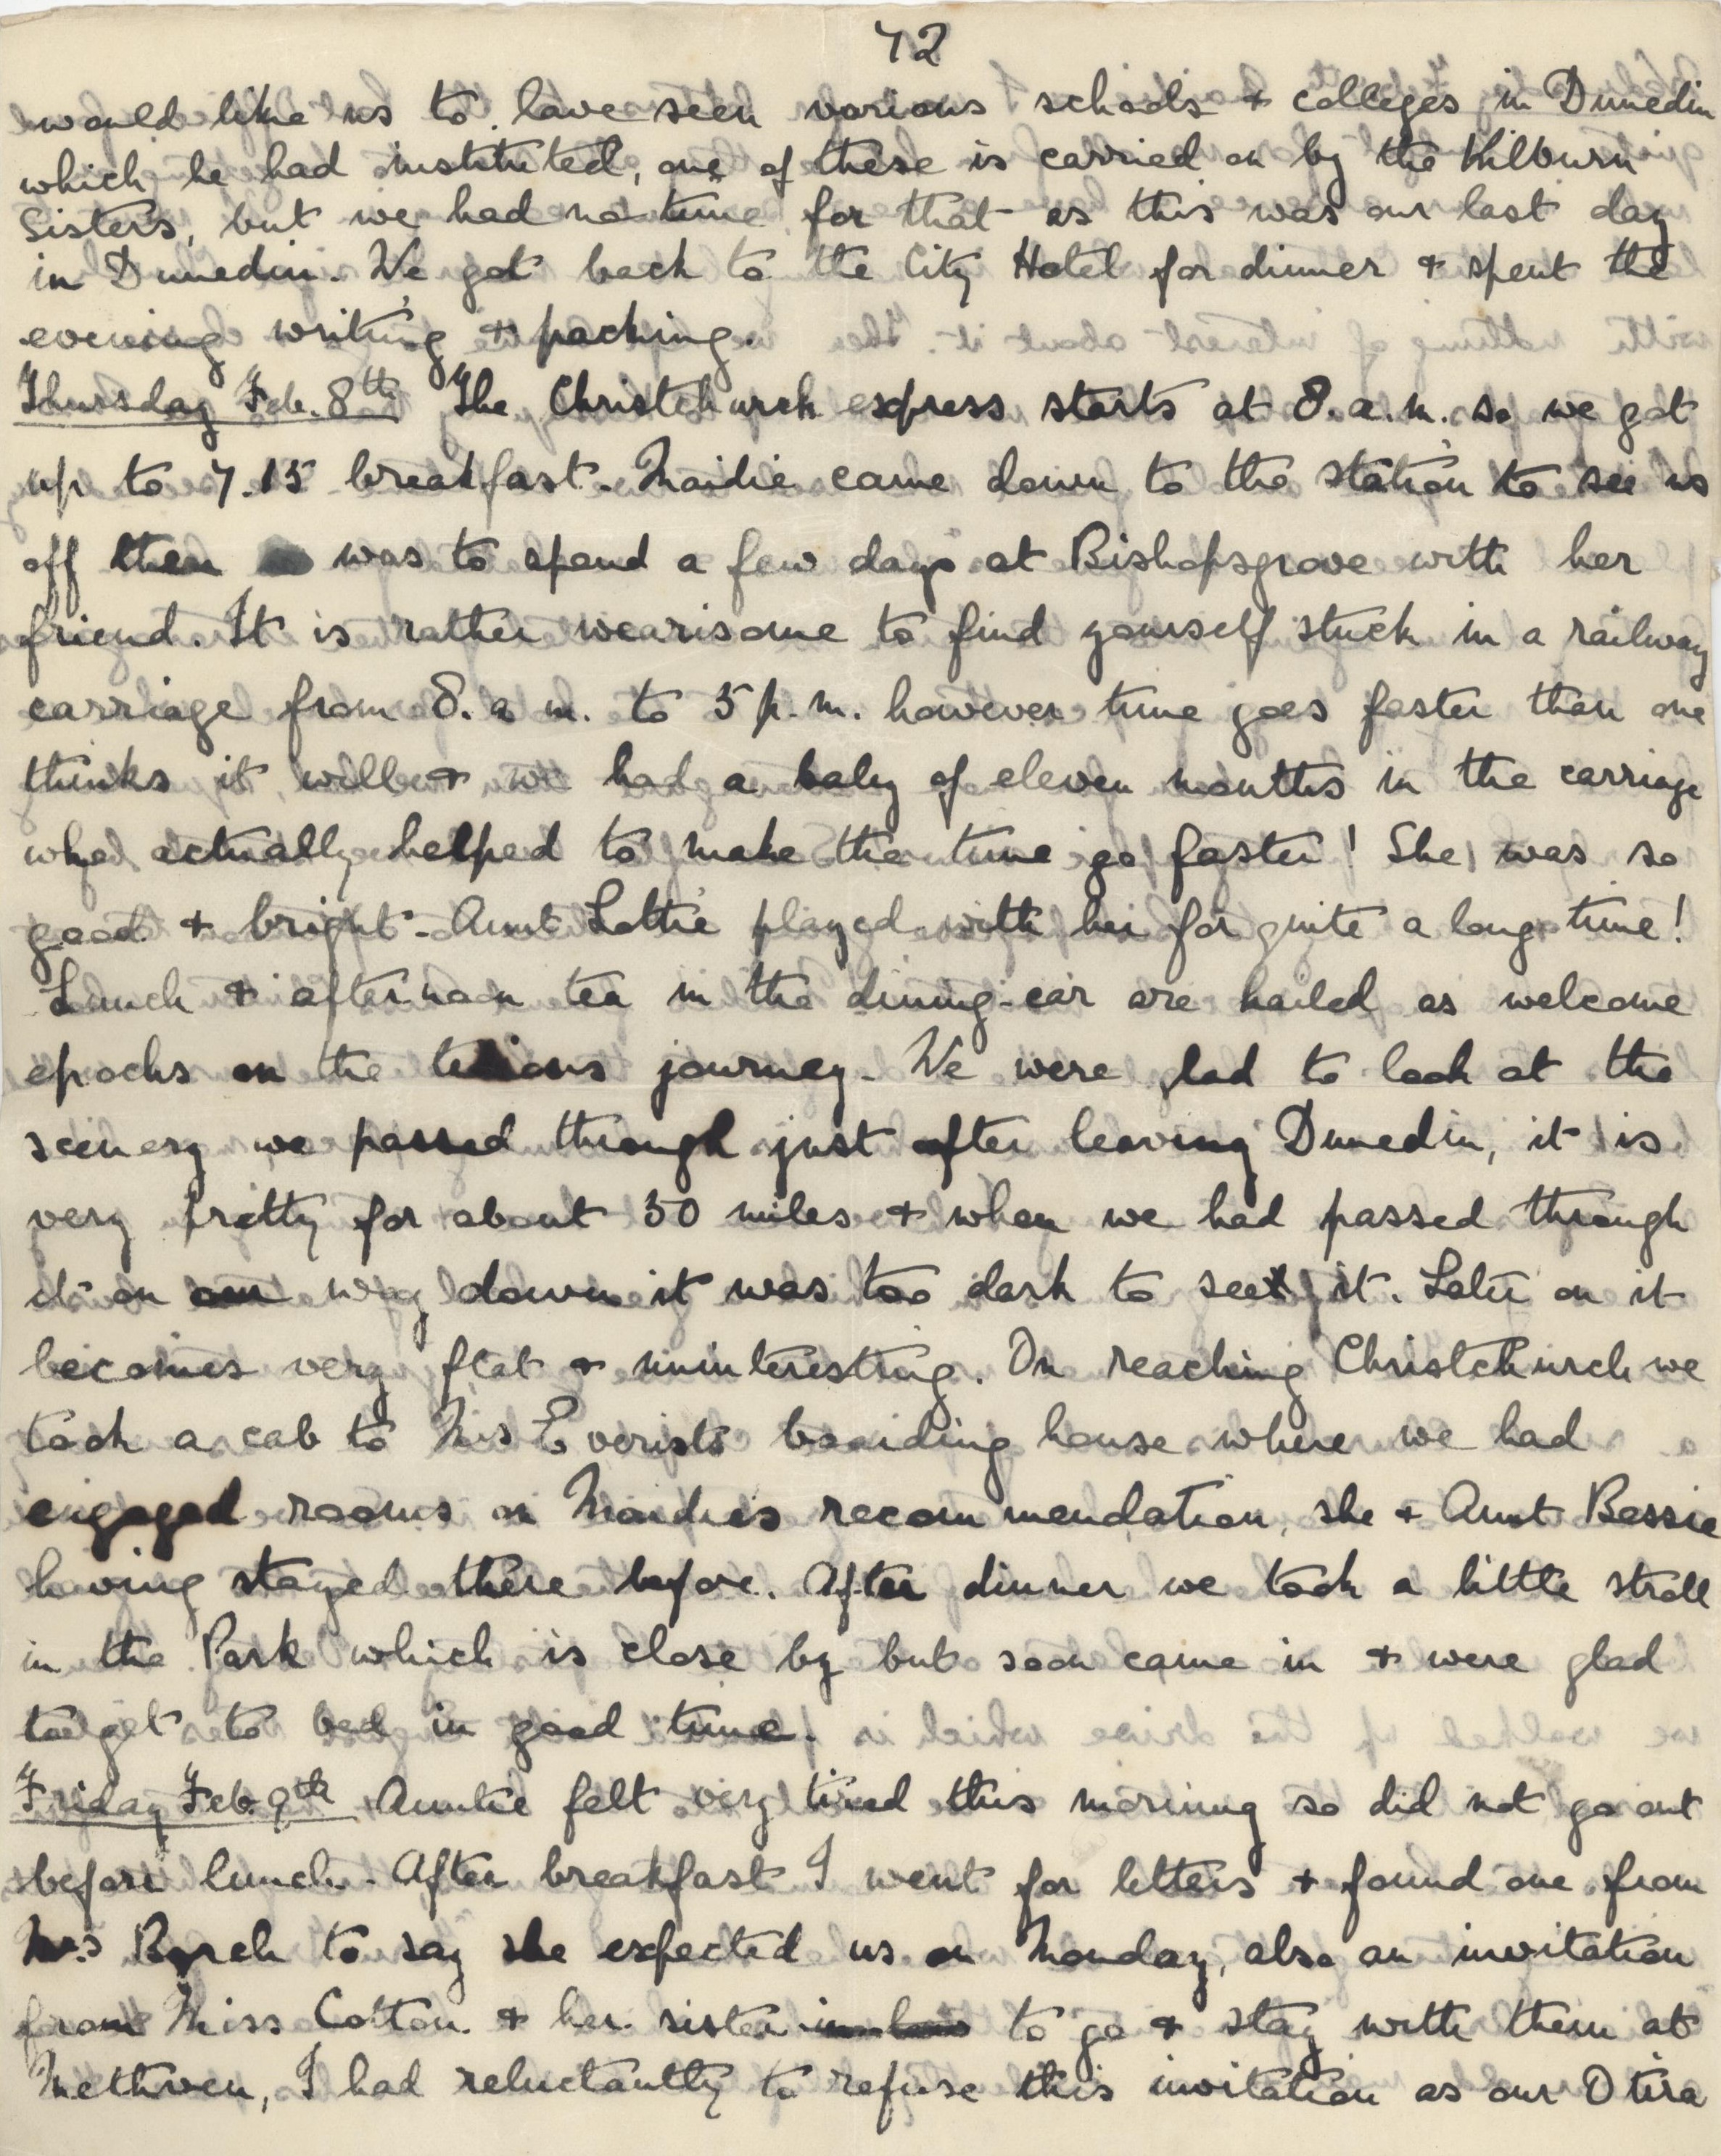 72
would like us to have seen various schools & colleges in Dunedin
which he had instituted, one of these is carried on by the Kilburn
Sisters, but we had no time for that as this was our last day
in Dunedin. We got back to the City Hotel for dinner & spent the
evening writing & packing.
Thursday Feb. 8th The Christchurch express starts at 8. a.m. so we got
up to 7.15 breakfast. Maidie came down to the station to see us
off then was to spend a few days at Bishopsgrove with her
friend. It is rather wearisome to find yourself stuck in a railway
carriage from 8. a m. to 5 p.m. however time goes faster than one
thinks it will & we had a baby of eleven months in the carriage
who actually helped to make the time go faster! She was so
good & bright - Aunt Lottie played with her for quite a long time!
Lunch & afternoon tea in the dining-car are hailed as welcome
epochs on the tedious journey. We were glad to look at the
scenery we passed through just after leaving Dunedin, it is
very pretty for about 50 miles & when we had passed through
it on our way down it was too dark to see it. Later on it
becomes very flat & uninteresting. On reaching Christchurch we
took a cab to Mrs Everists boarding house where we had
engaged rooms on Maidie's recommendation, she & Aunt Bessie
having stayed there before. After dinner we took a little stroll
in the Park which is close by but soon came in & were glad
to get to bed in good time.
Friday Feb. 9th Auntie felt very tired this morning so did not go out
before lunch. After breakfast I went for letters & found one from
Mrs Burch to say she expected us on Monday, also an invitation
from Miss Cotton & her sister in-law to go & stay with them at
Methven, I had reluctantly to refuse this invitation as our Otira